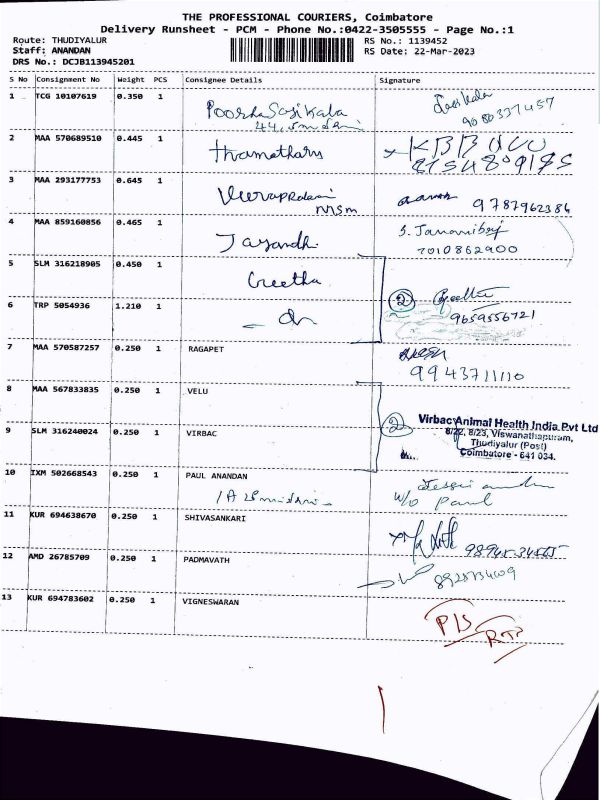 THE PROFESSIONAL COURIERS, Coimbatore
Delivery Runsheet - PCM - Phone No.:0422-3505555 - Page No.:1
Route: THUDIYALUR
RS No.: 1139452
Staff: ANANDAN
RS Date: 22-Mar-2023
DRS No.: DCJB113945201
S No Consignment No Weight PCS Consignee Details Signature
1 TCG 10107619 0.350 1 Poorna Sasikala Sasikala
44,
2 MAA 570689510 0.445 1
3 MAA 293177753 0.645 1 9787962386
4 MAA 859160856 0.465 1 Jayandhi S. Jananiboy
7010862900
5 SLM 316218905 0.450 1 Geetha
2 Geetha
9659556721
6 TRP 5054936 1.210 1
7 MAA 570587257 0.250 1 RAGAPET
9943711110
8 MAA 567833835 0.250 1 VELU
2 Virbac Animal Health India Pvt Ltd
8/22, 8/23, Viswanathapuram,
Thudiyalur (Post)
Coimbatore - 641 034.
9 SLM 316240024 0.250 1 VIRBAC
10 IXM 502668543 0.250 1 PAUL ANANDAN
W/o Paul
11 KUR 694638670 0.250 1 SHIVASANKARI
12 AMD 26785709 0.250 1 PADMAVATH
13 KUR 694783602 0.250 1 VIGNESWARAN
P/S
RTO